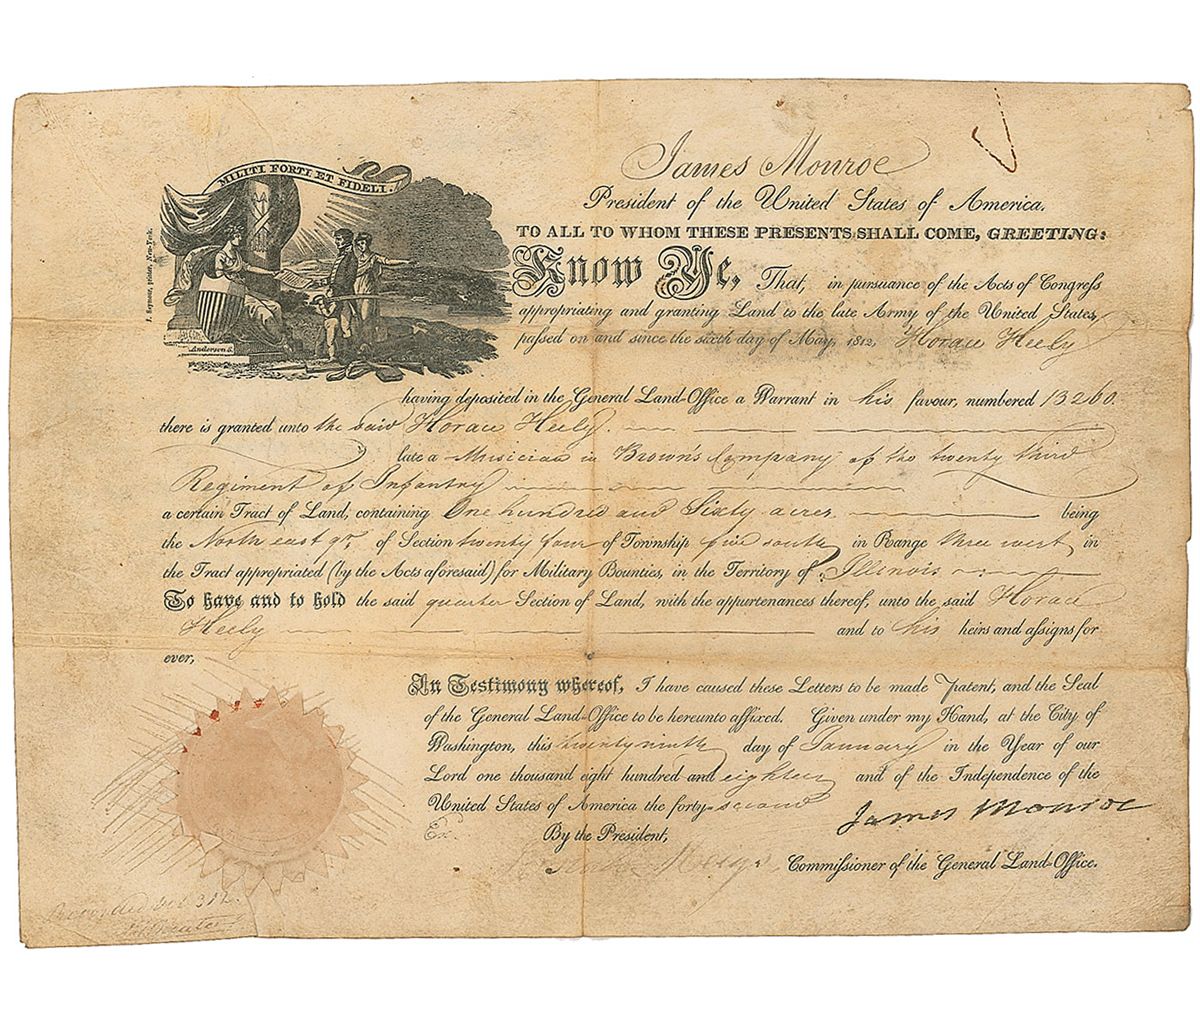 MILITI FORTI ET FIDELI.
J. Seymour, printer, New-York.
Anderson S.
James Monroe
President of the United States of America,
TO ALL TO WHOM THESE PRESENTS SHALL COME, GREETING:
Know Ye, That, in pursuance of the Acts of Congress
appropriating and granting Land to the late Army of the United States,
passed on and since the sixth day of May, 1812, Horace Heely
having deposited in the General Land-Office a Warrant in his favour, numbered 13260.
there is granted unto the said Horace Heely.
late a Musician in Brown's Company of the twenty third
Regiment of Infantry
a certain Tract of Land, containing One hundred and Sixty acres being
the North east qr. of Section twenty four of Township five south in Range three west in
the Tract appropriated (by the Acts aforesaid) for Military Bounties, in the Territory of Illinois
To have and to hold the said quarter Section of Land, with the appurtenances thereof, unto the said Horace
Heely and to his heirs and assigns for
ever,
In Testimony whereof, I have caused these Letters to be made Patent, and the Seal
of the General Land-Office to be hereunto affixed. Given under my Hand, at the City of
Washington, this twenty ninth day of January in the Year of our
Lord one thousand eight hundred and eighteen and of the Independence of the
United States of America the forty-second
James Monroe
By the President,
Commissioner of the General Land-Office.
Recorded Vol. 312.